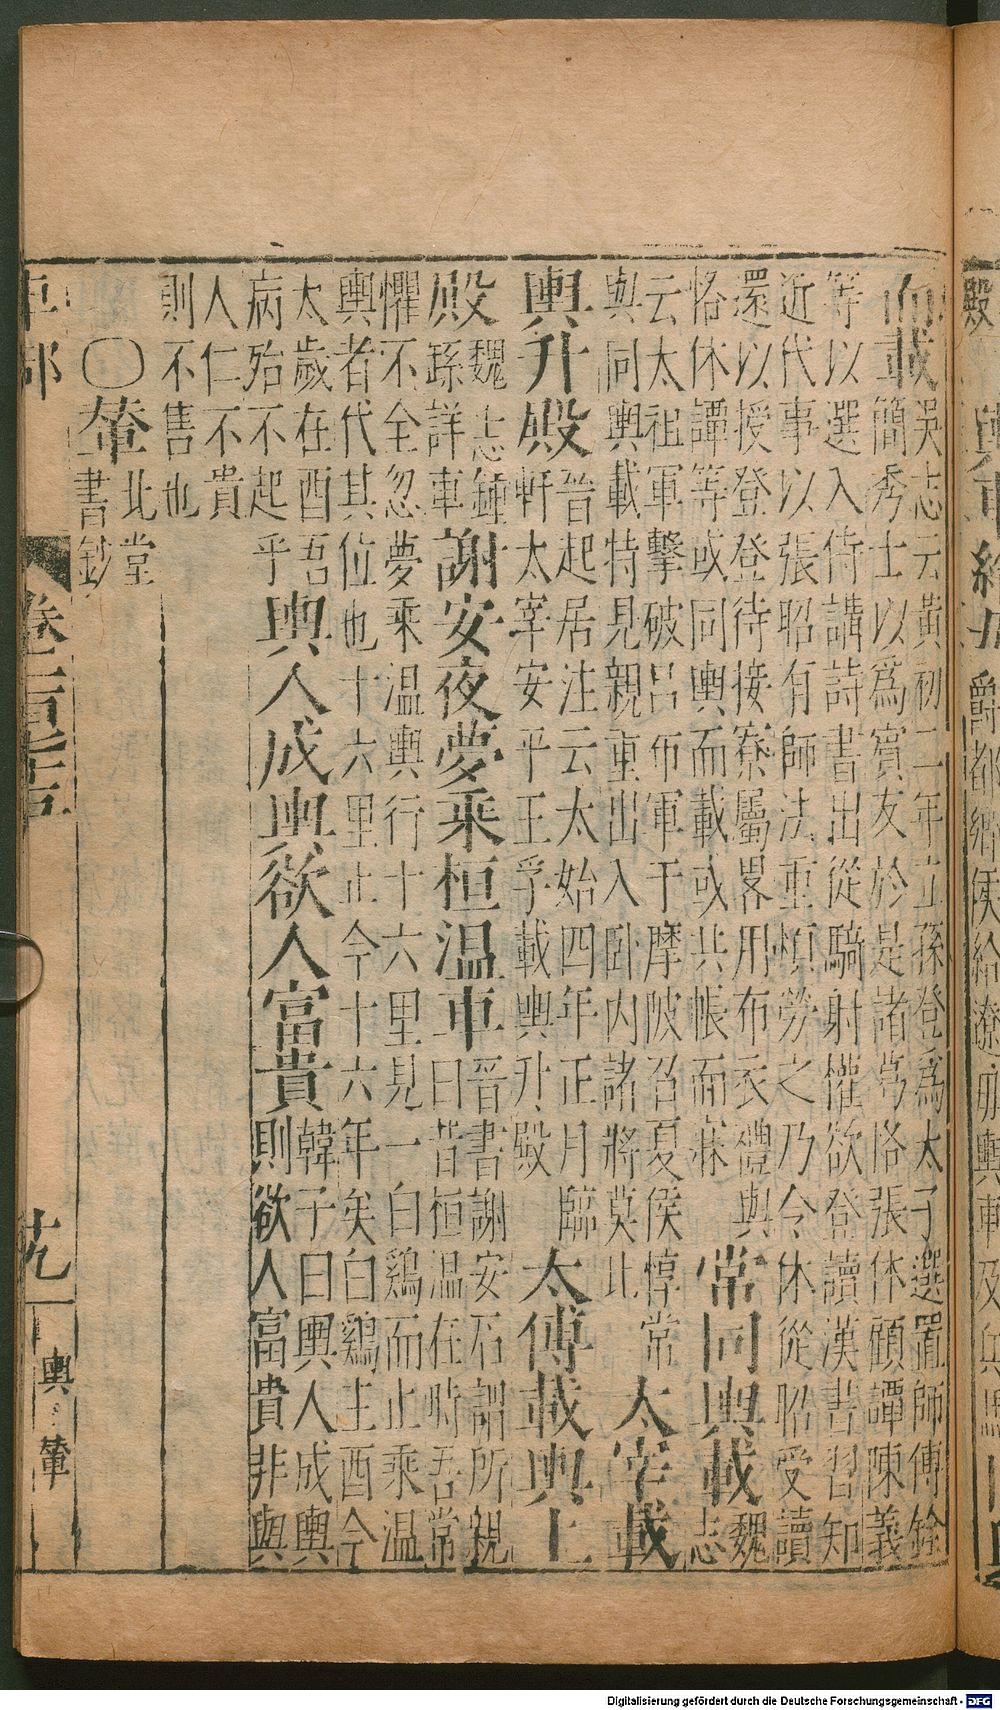 而載
吳志云黃初二年立孫登爲太子選置師傅銓
簡秀士以爲賓友於是諸葛恪張休顧譚陳義
等以選入侍講詩書出從騎射權欲登讀漢書習知
近代事以張昭有師法重煩勞之乃令休從昭受讀
還以授登登待接寮屬畧用布衣禮與
恪休譚等或同輿而載或共帳而寐
常同輿載
魏
志
云太祖軍擊破呂布軍于摩陂召夏侯惇常
與同輿載特見親重出入卧內諸將莫比
太宰載
輿升殿
晉起居注云太始四年正月臨
軒太宰安平王孚載輿升殿
太傅載輿上
殿
魏志鍾
繇詳車
謝安夜夢乘桓温車
晉書謝安石謂所親
曰昔桓温在時吾常
懼不全忽夢乘温輿行十六里見一白鷄而止乘温
輿者代其位也十六里止今十六年矣白鷄主酉今
太歲在酉吾
病殆不起乎
輿人成輿欲人富貴
韓子曰輿人成輿
則欲人富貴非輿
人仁不貴
則不售也
〇輦
北堂
書鈔
車部
廿九
輿 輦
Digitalisierung gefördert durch die Deutsche Forschungsgemeinschaft - DFG